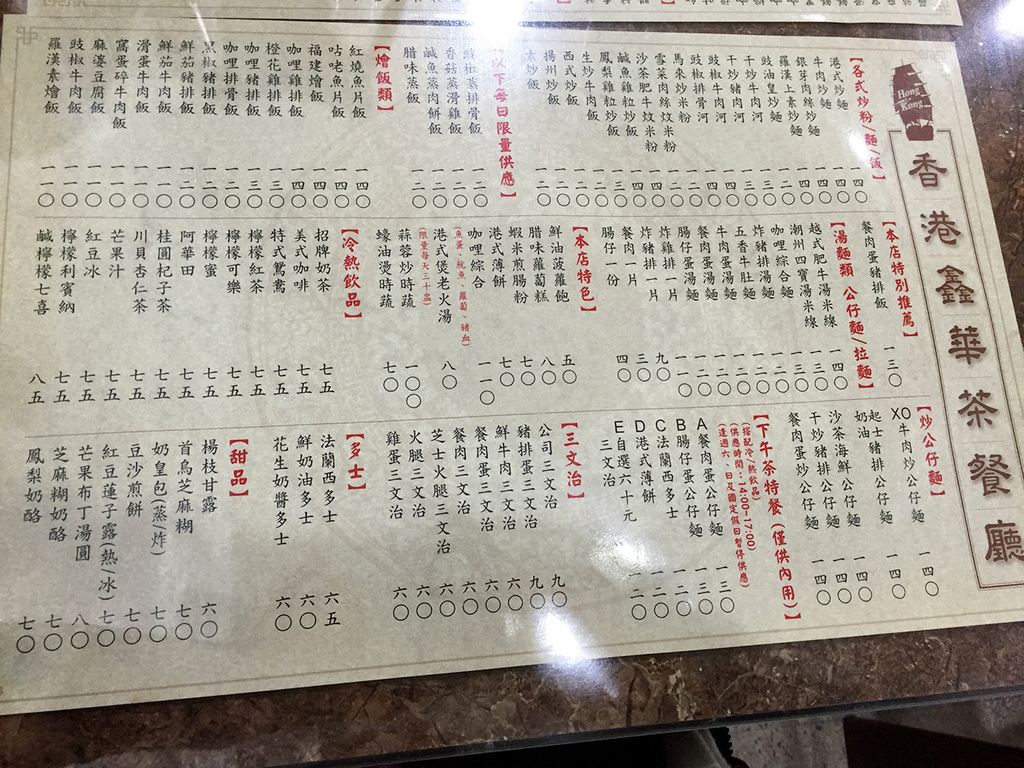 香港鑫華茶餐廳
Hong Kong
【各式炒粉/麵/飯】
港式炒麵 一四〇
牛肉炒麵 一四〇
銀芽肉絲炒麵 一四〇
羅漢上素炒麵 一四〇
豉油皇炒麵 一二〇
干炒牛肉河 一三〇
干炒豬肉河 一三〇
豉椒牛肉河 一四〇
豉椒排骨河 一四〇
馬來炒米粉 一二〇
雪菜肉絲炆米粉 一二〇
沙茶肥牛炆米粉 一四〇
鹹魚雞粒炒飯 一四〇
鳳梨雞粒炒飯 一三〇
生炒牛肉飯 一二〇
西式炒飯 一二〇
揚州炒飯 一二〇
素炒飯 一二〇
【以下每日限量供應】
豉椒蒸排骨飯 一二〇
香菇蒸滑雞飯 一二〇
鹹魚蒸肉餅飯 一二〇
臘味蒸飯 一二〇
【燴飯類】
紅燒魚片飯 一四〇
咕咾魚片飯 一四〇
福建燴飯 一四〇
咖哩雞排飯 一四〇
橙花雞排飯 一三〇
咖哩豬排飯 一三〇
咖哩排骨飯 一二〇
黑椒豬排飯 一二〇
鮮茄豬排飯 一二〇
鮮茄牛肉飯 一一〇
滑蛋牛肉飯 一一〇
窩蛋碎牛肉飯 一一〇
麻婆豆腐飯 一一〇
豉椒牛肉飯 一一〇
羅漢素燴飯 一一〇
【本店特別推薦】
餐肉蛋豬排飯 一三〇
【湯麵類 公仔麵/拉麵】
越式肥牛湯米線 一四〇
潮州四寶湯米線 一三〇
咖哩綜合麵 一三〇
炸豬排湯麵 一二〇
五香牛肚麵 一二〇
牛肉蛋湯麵 一二〇
餐肉蛋湯麵 一一〇
腸仔蛋湯麵 一一〇
炸雞排一片 一一〇
炸豬排一片 九〇
餐肉一片 三〇
腸仔一份 四〇
【本店特色】
鮮油菠蘿飽 五〇
臘味蘿蔔糕 八〇
蝦米煎腸粉 七〇
港式薄餅 七〇
咖哩綜合 一一〇
(魚蛋、魷魚、蘿蔔、豬血)
港式煲老火湯 八〇
(限量每天三十盅)
蒜蓉炒時蔬 一〇〇
蠔油燙時蔬 七〇
【冷熱飲品】
招牌奶茶 七五
美式咖啡 七五
特式鴛鴦 七五
檸檬紅茶 七五
檸檬可樂 七五
檸檬蜜 七五
阿華田 七五
桂圓杞子茶 七五
川貝杏仁茶 七五
芒果汁 七五
紅豆冰 七五
檸檬利賓納 七五
鹹檸檬七喜 八五
【炒公仔麵】
XO牛肉炒公仔麵 一四〇
起士豬排公仔麵 一四〇
奶油
沙茶海鮮公仔麵 一四〇
干炒豬排公仔麵 一四〇
餐肉蛋炒公仔麵 一四〇
【下午茶特餐(僅供內用)】
(搭配冷、熱飲品)
(供應時間:14:00-17:00)
(逢週六、日及國定假日暫停供應)
A餐肉蛋公仔麵 一三〇
B腸仔蛋公仔麵 一三〇
C法蘭西多士 一二〇
D港式薄餅 一二〇
E自選六十元 一二〇
三文治
【三文治】
公司三文治 九〇
豬排蛋三文治 九〇
鮮牛肉三文治 六〇
餐肉蛋三文治 六〇
餐肉三文治 六〇
芝士火腿三文治 六〇
火腿三文治 六〇
雞蛋三文治 六〇
【多士】
法蘭西多士 六五
鮮奶油多士 六〇
花生奶醬多士 六〇
【甜品】
楊枝甘露 六〇
首烏芝麻糊 七〇
奶皇包(蒸/炸) 七〇
豆沙煎餅 七〇
紅豆蓮子露(熱/冰) 七〇
芒果布丁湯圓 八〇
芝麻糊奶酪 七〇
鳳梨奶酪 七〇